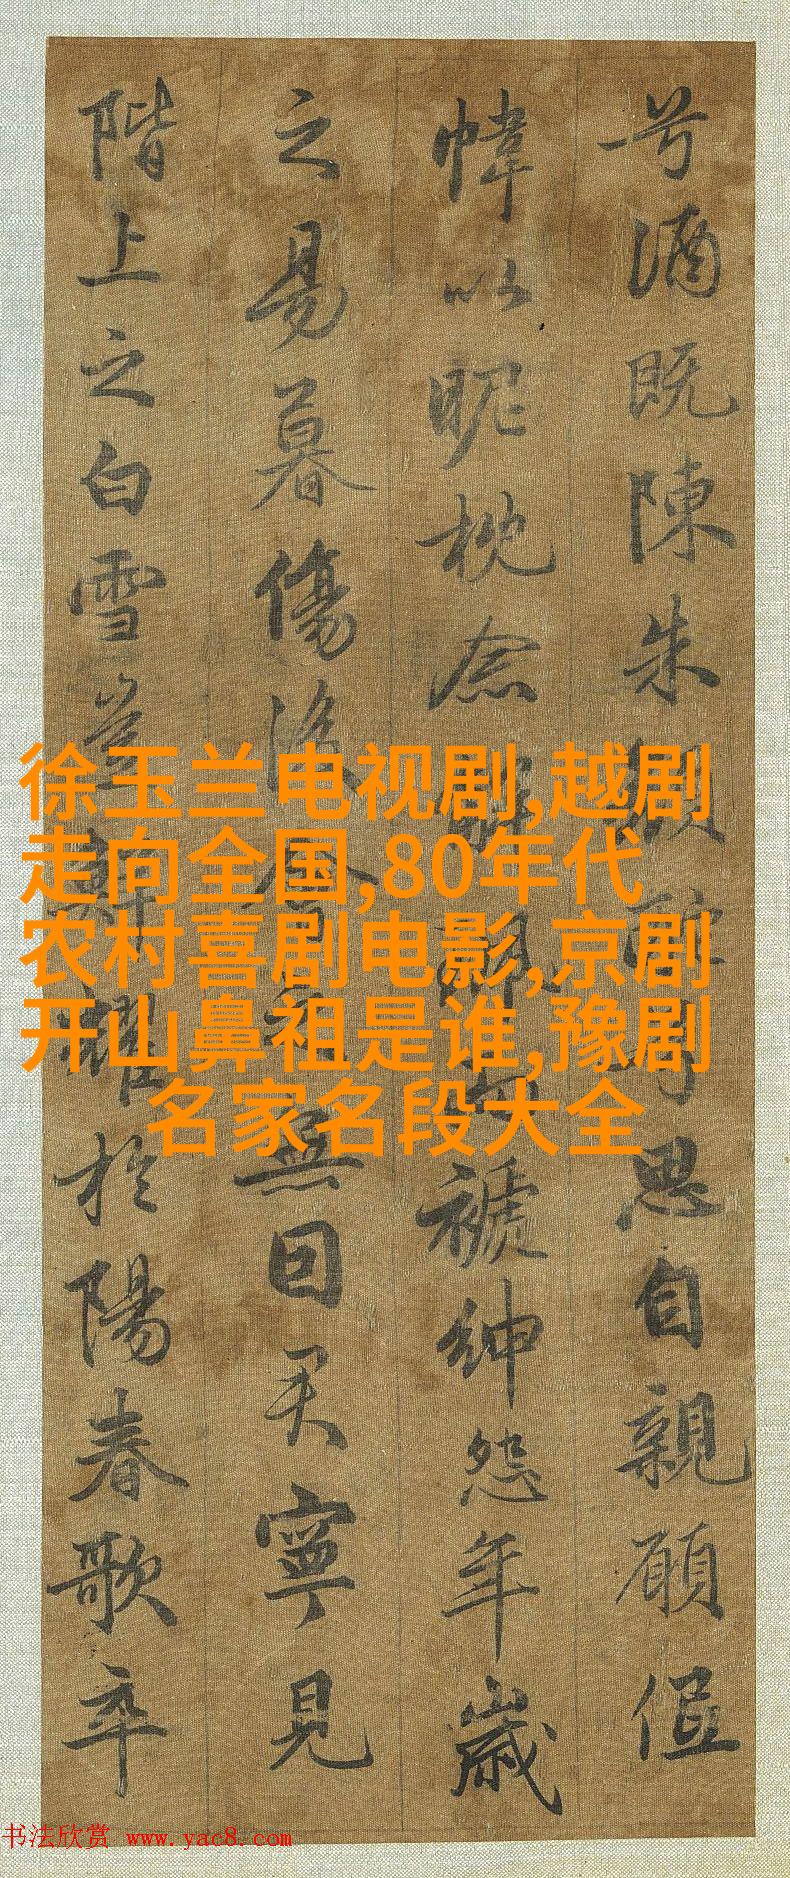 兮酒既陳朱顔酡兮思自親願低
幃以昵枕念解珮而褫紳怨年歲
之易暮傷後會之無因君寧見
階上之白雪豈鮮耀於陽春歌卒
徐玉兰电视剧,越剧
走向全国,80年代
农村喜剧电影,京剧
开山鼻祖是谁,豫剧
名家名段大全
书法欣赏 www.yac8.com